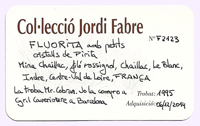 Col·lecció Jordi Fabre
Nº F2423
FLUORITA amb petits
cristalls de Pirita
Mina Chaillac, filó rossignol, Chaillac, Le Blanc,
Indre, Centre-Val de Loire, FRANÇA
La troba Mr. Cabran. Jo la compro a
Trobat: 1995
Gril Cauxeriaure a Barcelona
Adquisició: 06/12/2014